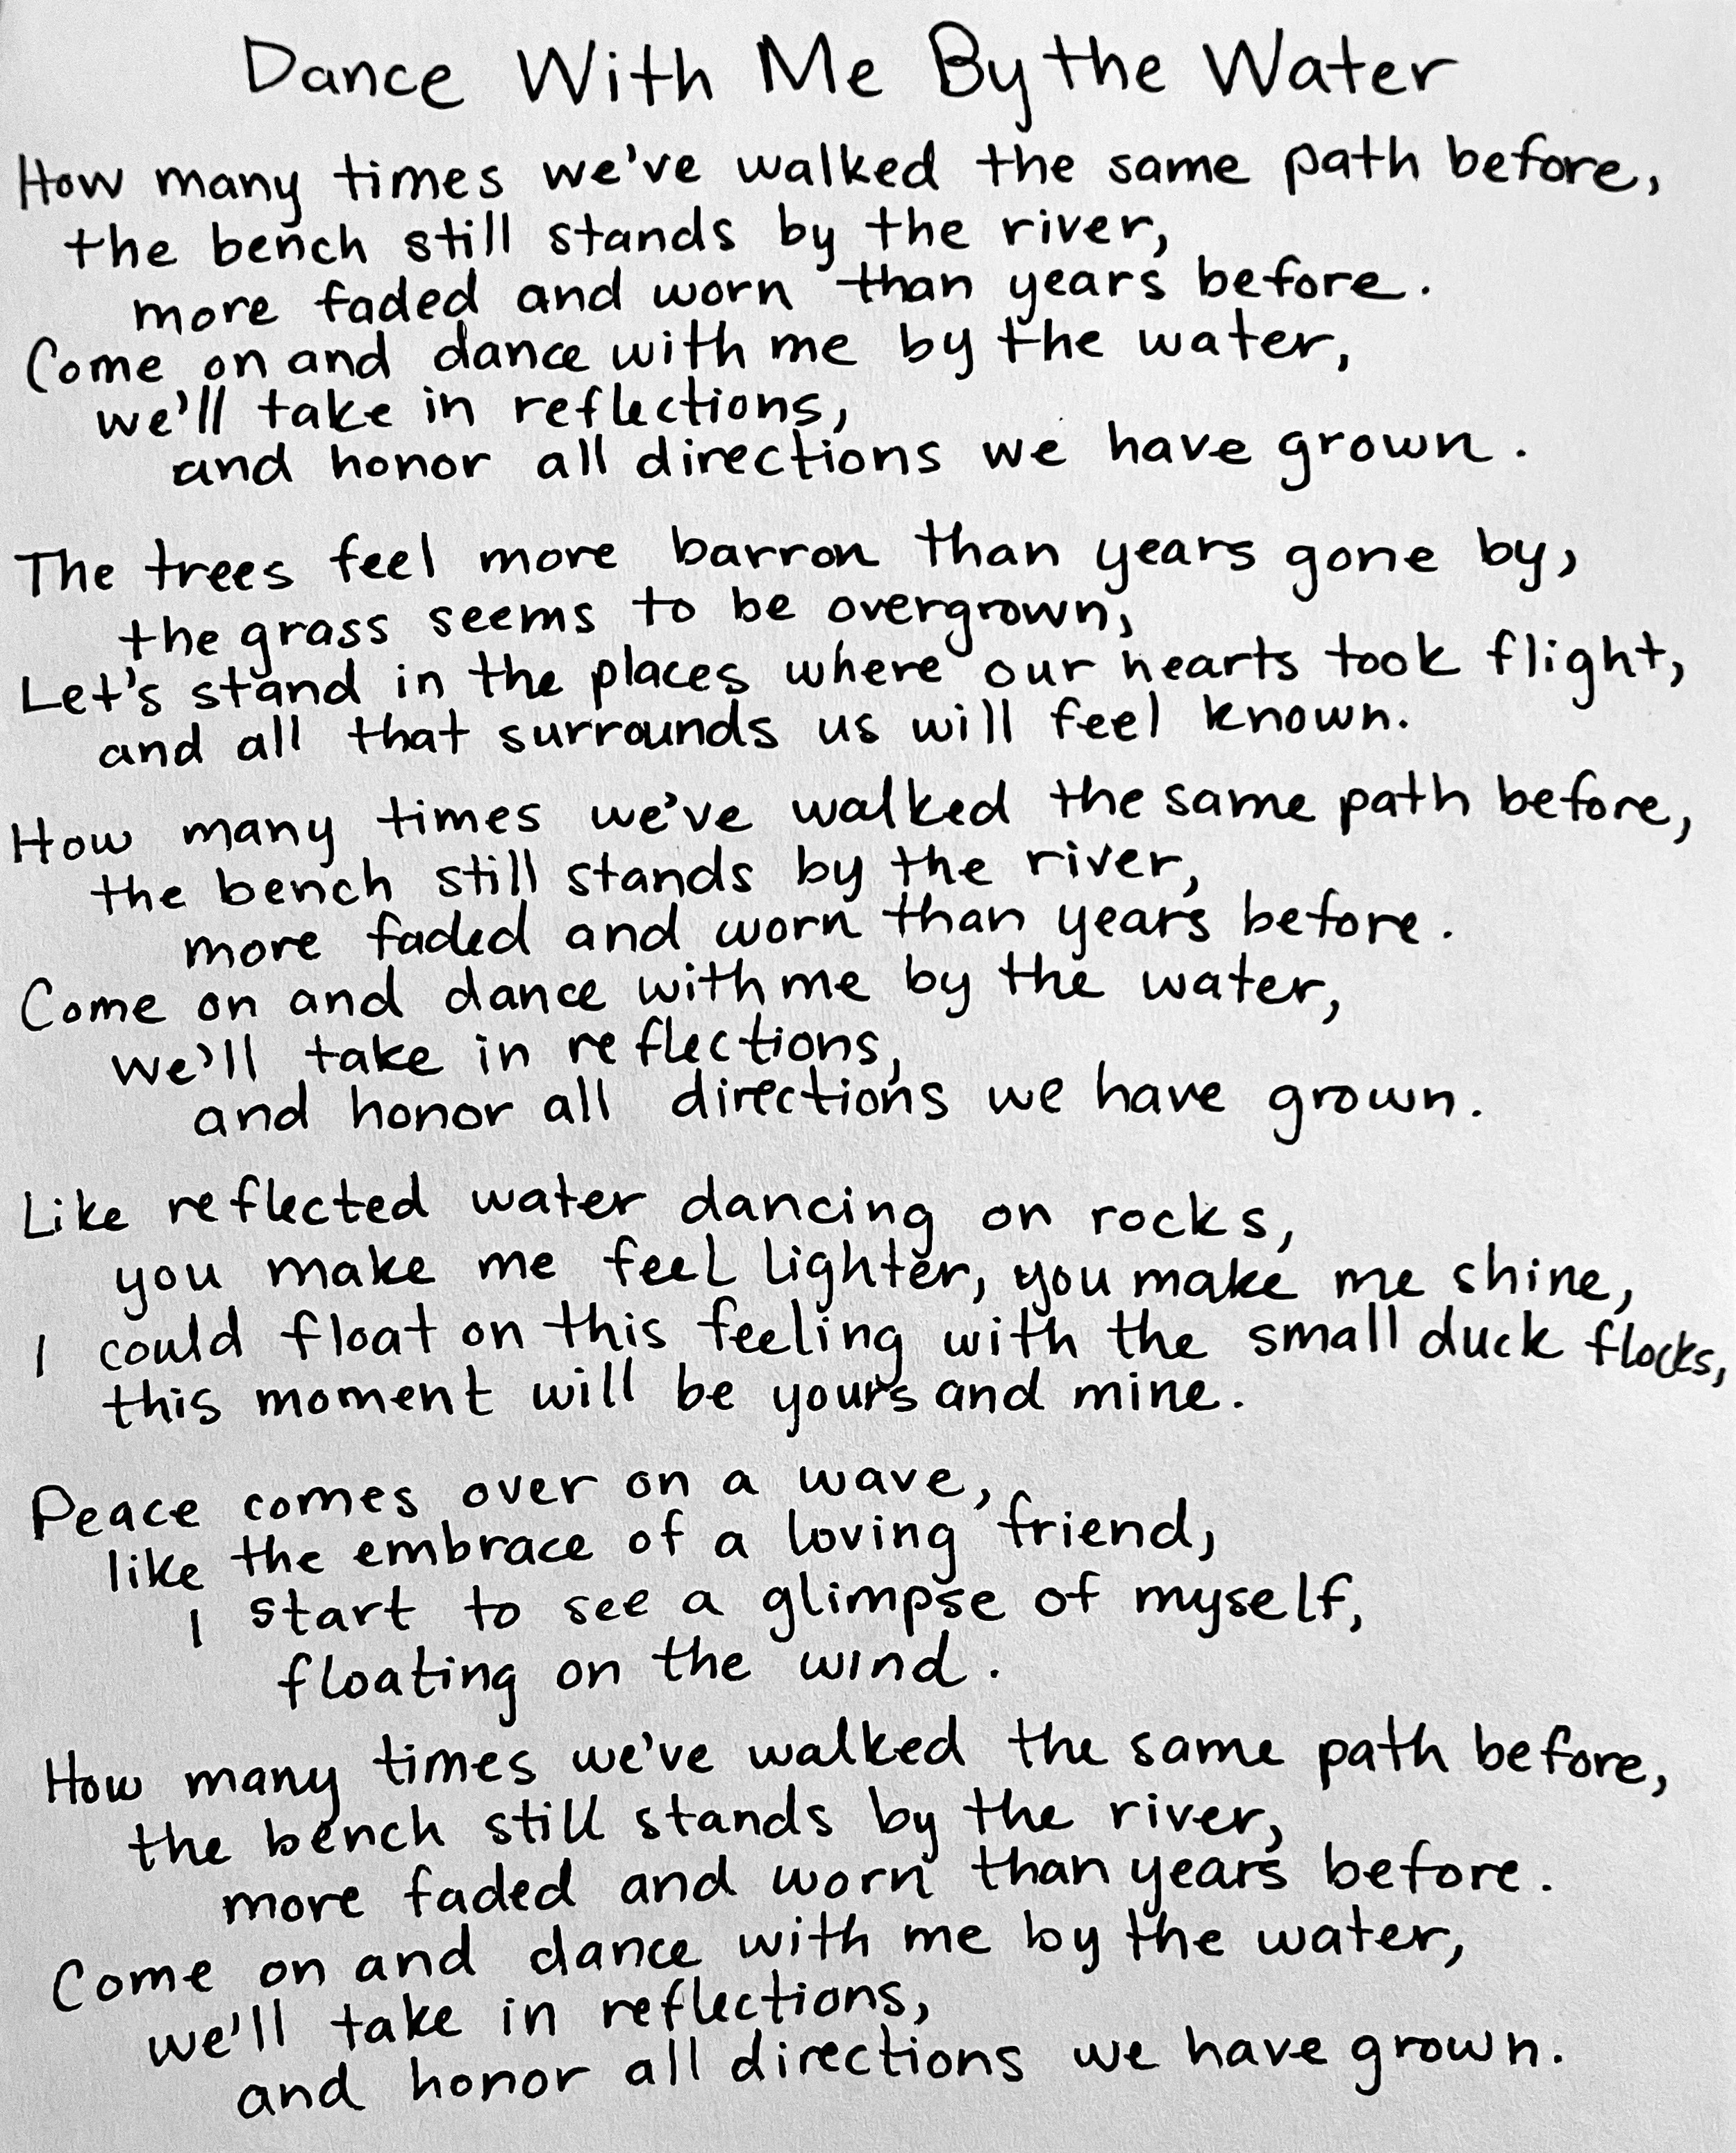 Dance With Me By the Water
How many times we've walked the same path before,
the bench still stands by the river,
more faded and worn than years before.
Come on and dance with me by the water,
we'll take in reflections,
and honor all directions we have grown.
The trees feel more barron than years gone by,
the grass seems to be overgrown,
Let's stand in the places where our hearts took flight,
and all that surrounds us will feel known.
How many times we've walked the same path before,
the bench still stands by the river,
more faded and worn than years before.
Come on and dance with me by the water,
we'll take in reflections,
and honor all directions we have grown.
Like reflected water dancing on rocks,
you make me feel lighter, you make me shine,
I could float on this feeling with the small duck flocks,
this moment will be yours and mine.
Peace comes over on a wave,
like the embrace of a loving friend,
I start to see a glimpse of myself,
floating on the wind.
How many times we've walked the same path before,
the bench still stands by the river,
more faded and worn than years before.
Come on and dance with me by the water,
we'll take in reflections,
and honor all directions we have grown.